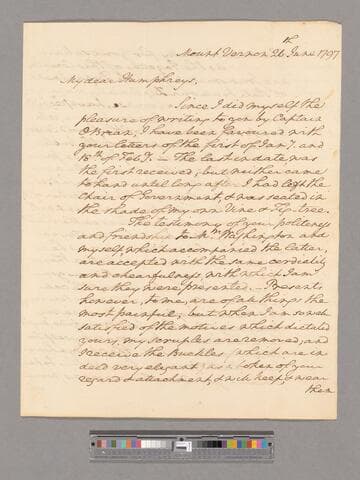 Mount Vernon 26th June 1797
My dear Humphreys,
Since I did myself the
pleasure of writing to you by Captain
OBrian, I have been favoured with
your letters of the first of Jany. and
18th of Feby. — The last in date was
the first received; but neither came
to hand until long after I had left the
Chair of Government, & was seated in
the shade of my own Vine & Fig-tree.
The testimony of your politeness
and friendship to Mrs. Washington and
myself, which accompanied the latter,
are accepted with the same cordiality
and chearfulness, with which I am
sure they were presented. — Presents
however, to me, are of all things the
most painful; but when I am so well
satisfied of the motives which dictated
yours, my scruples are removed; and
I receive the Buckles (which are in
deed very elegant) as a token of your
regard & attachment; & will keep, & wear
them